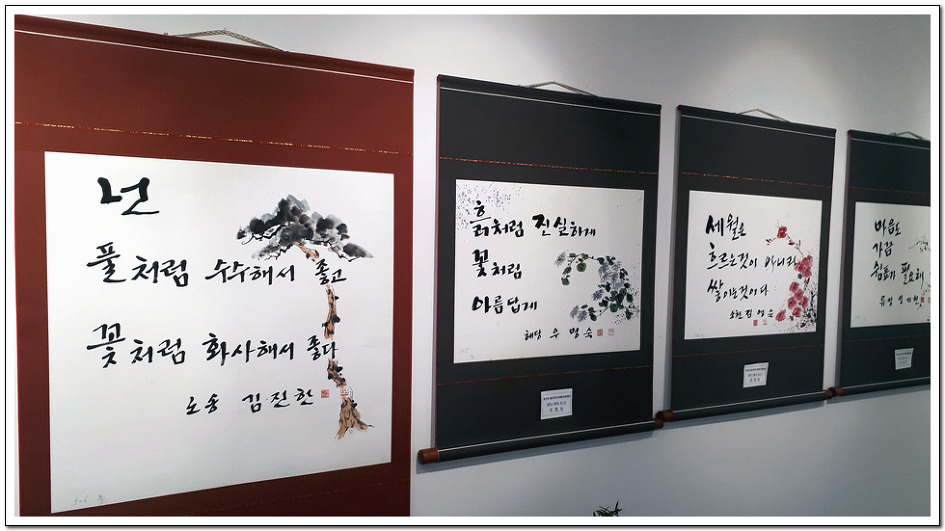 넌
풀처럼 수수해서 좋고
꽃처럼 화사해서 좋다
노송 김진한
흙처럼 진실하게
꽃처럼
아름답게
혜당 우명숙
세월은
흐르는것이 아니라
쌓이는것이다
마음도
가끔
쉼표가 필요해